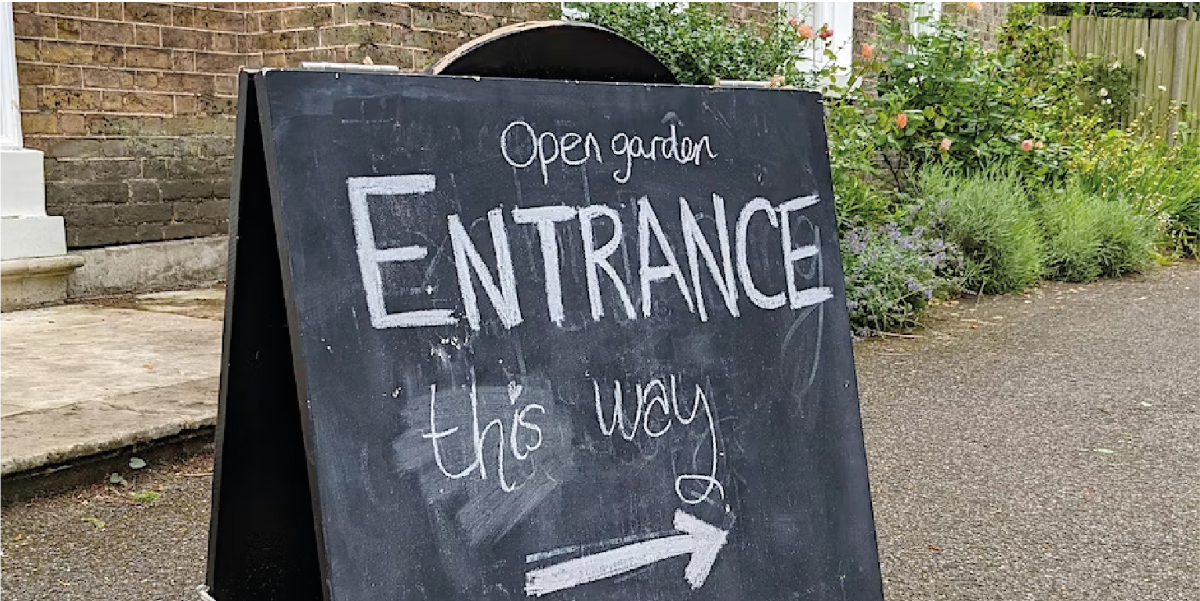 Open garden
ENTRANCE
this way